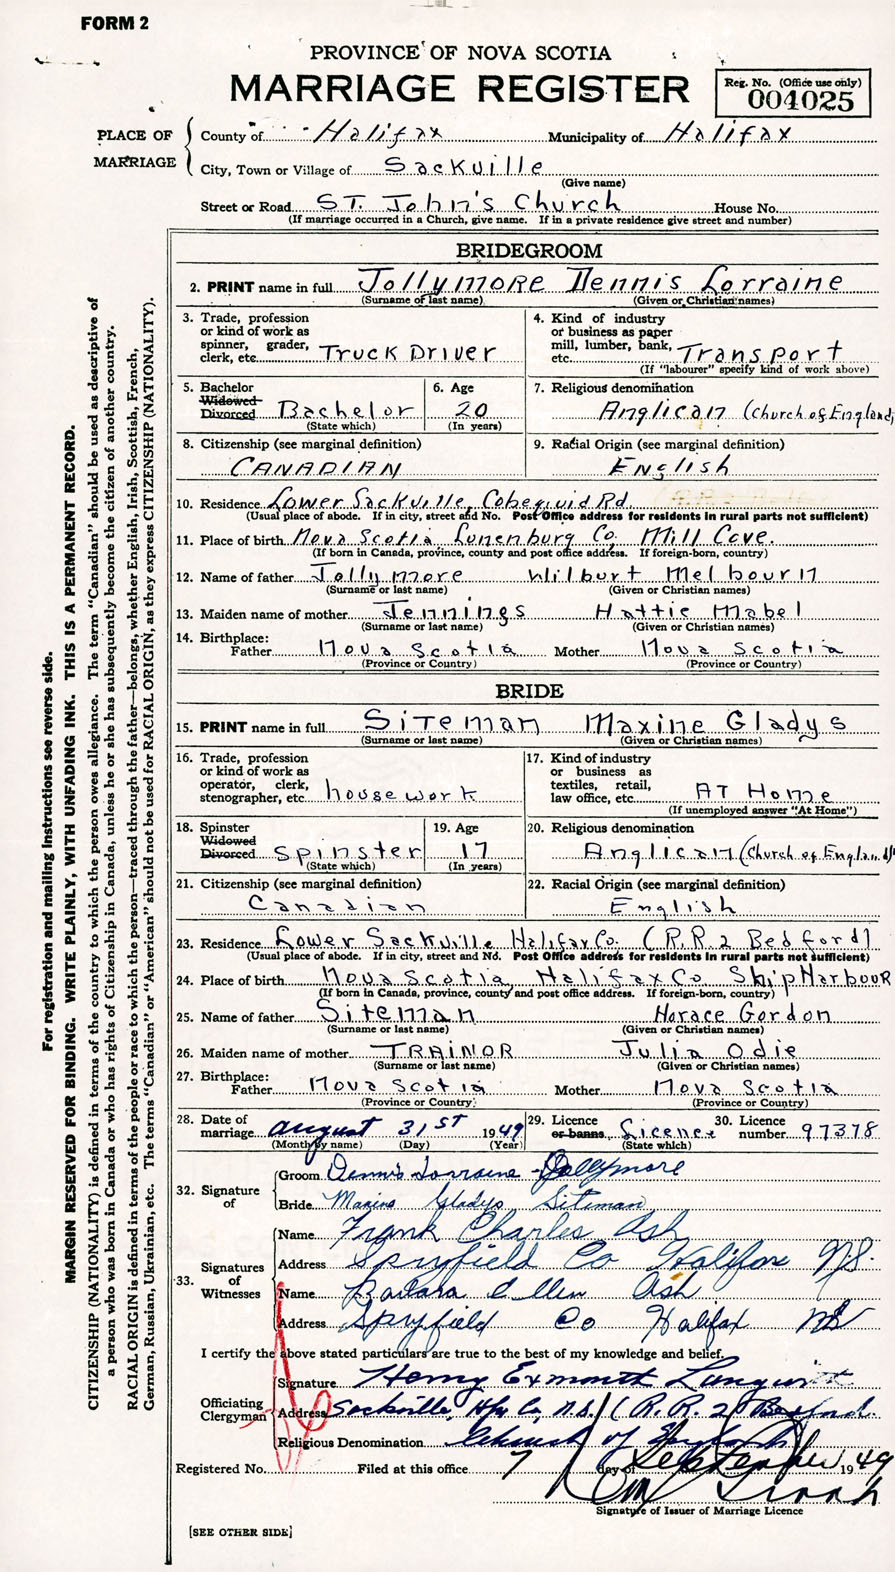 FORM 2
PROVINCE OF NOVA SCOTIA
MARRIAGE REGISTER
Reg. No. (Office use only)
004025
PLACE OF MARRIAGE
County of Halifax Municipality of Halifax
City, Town or Village of Sackville
(Give name)
Street or Road ST. John's Church House No.
(If marriage occurred in a Church, give name. If in a private residence give street and number)
BRIDEGROOM
2. PRINT name in full Jollymore Dennis Lorraine
(Surname of last name) (Given or Christian names)
3. Trade, profession or kind of work as spinner, grader, clerk, etc. Truck Driver
4. Kind of industry or business as paper mill, lumber, bank, etc. Transport
(If "labourer" specify kind of work above)
5. Bachelor Widowed Divorced Bachelor
(State which)
6. Age 20
(In years)
7. Religious denomination
Anglican (Church of England)
8. Citizenship (see marginal definition)
CANADIAN
9. Racial Origin (see marginal definition)
English
10. Residence Lower Sackville, Cobequid Rd.
(Usual place of abode. If in city, street and No. Post Office address for residents in rural parts not sufficient)
11. Place of birth Nova Scotia Lunenburg Co. Mill Cove.
(If born in Canada, province, county and post office address. If foreign-born, country)
12. Name of father Jollymore Wilburt Melbourn
(Surname or last name) (Given or Christian names)
13. Maiden name of mother Jennings Hattie Mabel
(Surname or last name) (Given or Christian names)
14. Birthplace:
Father Nova Scotia Mother Nova Scotia
(Province or Country) (Province or Country)
BRIDE
15. PRINT name in full Siteman Maxine Gladys
(Surname or last name) (Given or Christian names)
16. Trade, profession or kind of work as operator, clerk, stenographer, etc. housework
17. Kind of industry or business as textiles, retail, law office, etc. AT Home
(If unemployed answer "At Home")
18. Spinster Widowed Divorced Spinster
(State which)
19. Age 17
(In years)
20. Religious denomination
Anglican (Church of England)
21. Citizenship (see marginal definition)
Canadian
22. Racial Origin (see marginal definition)
English
23. Residence Lower Sackville Halifax Co. (R.R.2 Bedford)
(Usual place of abode. If in city, street and Nd. Post Office address for residents in rural parts not sufficient)
24. Place of birth Nova Scotia, Halifax Co Ship Harbour
(If born in Canada, province, county and post office address. If foreign-born, country)
25. Name of father Siteman Horace Gordon
(Surname or last name) (Given or Christian names)
26. Maiden name of mother TRAINOR Julia Odie
(Surname or last name) (Given or Christian names)
27. Birthplace:
Father Nova Scotia Mother Nova Scotia
(Province or Country) (Province or Country)
28. Date of marriage August 31st 1949
(Month by name) (Day) (Year)
29. Licence or banns Licence
(State which)
30. Licence number 97378
32. Signature of
Groom Dennis Lorraine Jollymore
Bride Maxine Gladys Siteman
33. Signatures of Witnesses
Name Frank Charles Ash
Address Spryfield Co Halifax N.S.
Name Barbara Ellen Ash
Address Spryfield Co Halifax NS
I certify the above stated particulars are true to the best of my knowledge and belief.
Officiating Clergyman
Signature Henry Exmouth
Address Sackville, Hfx Co, N.S. (R.R. 2 Bedford.
Religious Denomination Church of England
Registered No. Filed at this office 7 day of September 1949
Signature of Issuer of Marriage Licence
[SEE OTHER SIDE]
For registration and mailing instructions see reverse side.
MARGIN RESERVED FOR BINDING. WRITE PLAINLY, WITH UNFADING INK. THIS IS A PERMANENT RECORD.
CITIZENSHIP (NATIONALITY) is defined in terms of the country to which the person owes allegiance. The term "Canadian" should be used as descriptive of
a person who was born in Canada or who has rights of Citizenship in Canada, unless he or she has subsequently become the citizen of another country.
RACIAL ORIGIN is defined in terms of the people or race to which the person—traced through the father—belongs, whether English, Irish, Scottish, French,
German, Russian, Ukrainian, etc. The terms "Canadian" or "American" should not be used for RACIAL ORIGIN, as they express CITIZENSHIP (NATIONALITY).